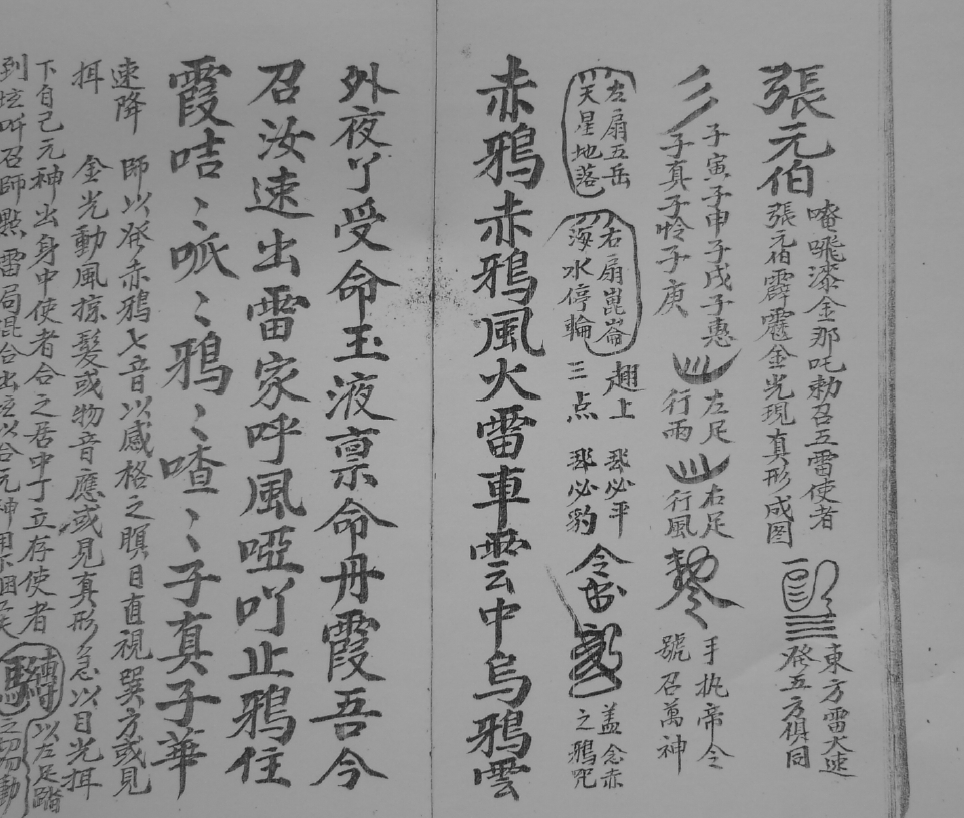 張元伯
唵吰漆金那吒勅召五雷使者
張元伯霹靂金光現真形成图
東方雷大速
發五方俱同
子寅子申子戊子惠
子真子怜子庚
左足
行雨
右足
行風
手执帝令
號召萬神
左扇五岳
天星地落
右扇崑崙
海水停輪
趐上
三点
那必平
那必豹
令
盖念赤
之鴉咒
赤鴉赤鴉風火雷車雲中烏鴉雲
外夜丫受命玉液禀命丹霞吾今
召汝速出雷家呼風啞吖止鴉住
霞咭〻哌〻鴉〻喳〻子真子華
速降
師以發赤鴉七音以感格之瞑目直視巽方或見
金光動風掠髮或物音應或見真形急以目光挕
挕
下自己元神出身中使者合之居中丁立存使者
到坛吽召師點雷局混合出坛以合元神用
以左足踏